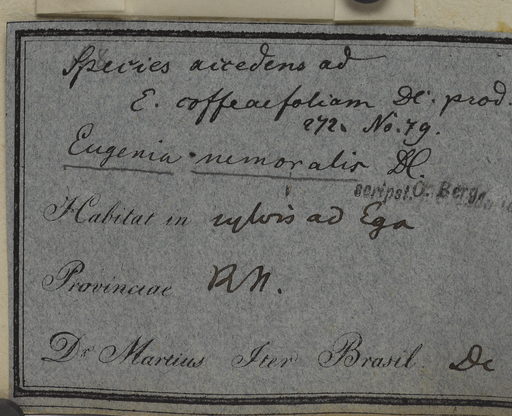 Species accedens ad
E. coffeaefoliam DC. prod.
272. No. 79.
Eugenia nemoralis DC.
scripst. O. Berg.
Habitat in sylvis ad Ega
Provinciae R.N.
Dr Martius Iter Brasil. Dc